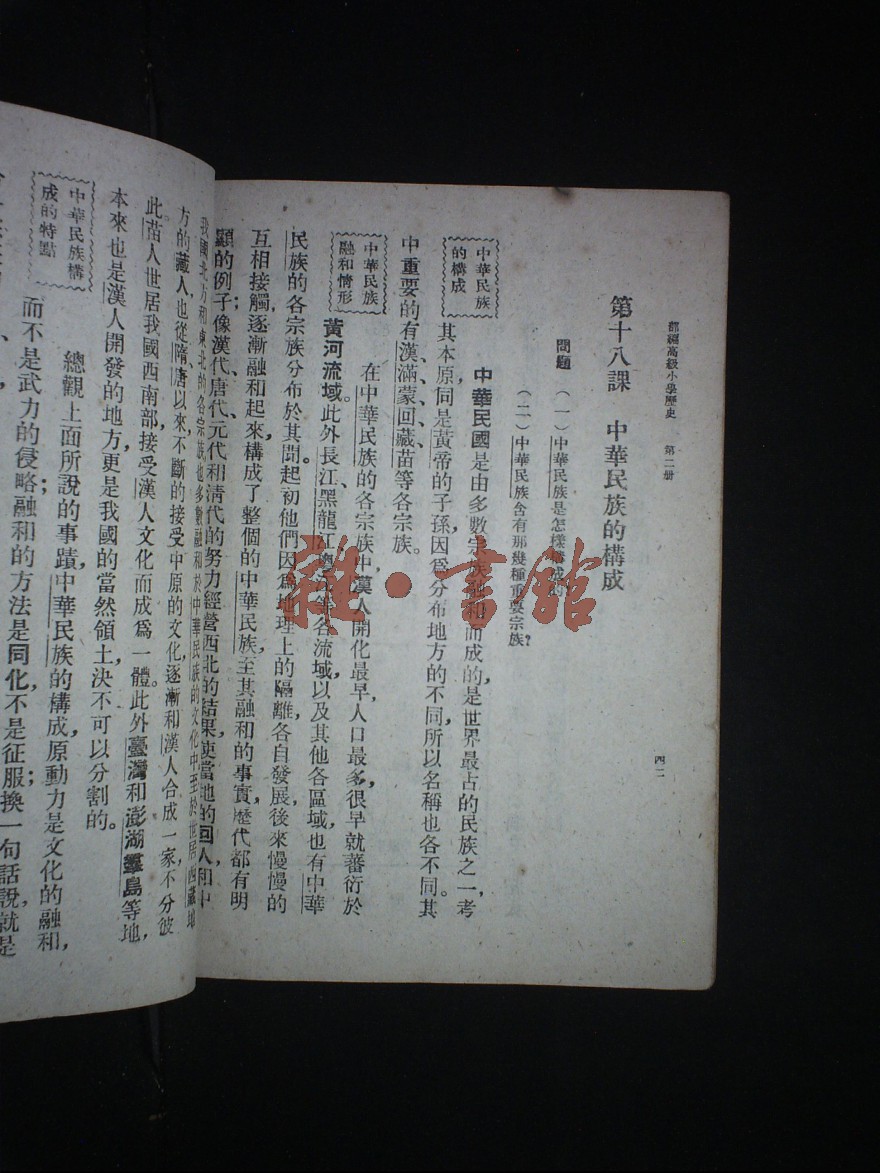 部編高級小學歷史　第二册
四二
第十八課　中華民族的構成
問題　（一）中華民族是怎樣構成的
（二）中華民族含有那幾種重要宗族？
中華民族
的構成
中華民國是由多數宗族融和而成的，是世界最古的民族之一，考
其本原，同是黃帝的子孫，因爲分布地方的不同，所以名稱也各不同。其
中重要的有漢、滿、蒙、回、藏、苗等各宗族。
中華民族
融和情形
在中華民族的各宗族中，漢人開化最早，人口最多，很早就蕃衍於
黃河流域。此外長江、黑龍江、等各流域以及其他各區域也有中華
民族的各宗族分布於其間。起初他們因爲地理上的隔離，各自發展，後來慢慢的
互相接觸，逐漸融和起來，構成了整個的中華民族，至其融和的事實，歷代都有明
顯的例子；像漢代、唐代、元代和清代的努力經營西北的結果，使當地的回人和
我國北方和東北的各宗族，也多數融和於中華民族的文化中，至於世居西藏地
方的藏人，也從隋、唐以來，不斷的接受中原的文化，逐漸和漢人合成一家，不分彼
此。苗人世居我國西南部，接受漢人文化而成爲一體。此外臺灣和澎湖羣島等地，
本來也是漢人開發的地方，更是我國的當然領土，決不可以分割的。
中華民族構
成的特點
總觀上面所說的事蹟，中華民族的構成，原動力是文化的融和，
而不是武力的侵略；融和的方法是同化，不是征服；換一句話說，就是
雜·書館